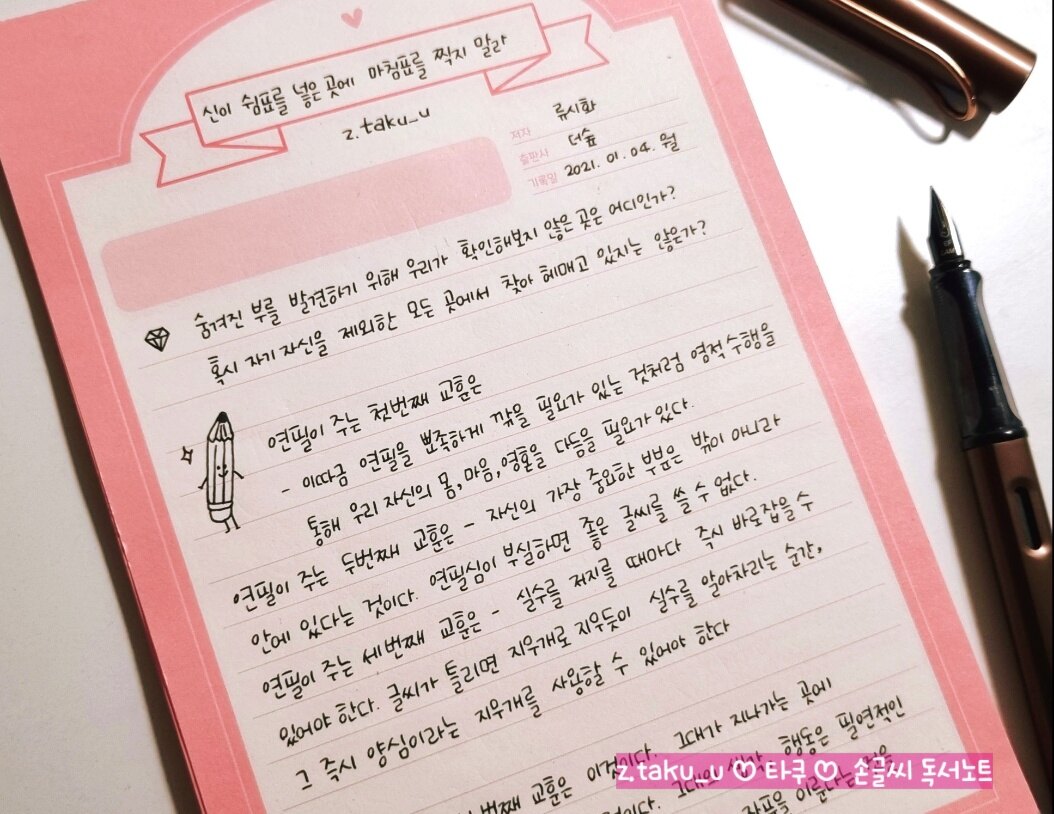 신이 쉼표를 넣은 곳에 마침표를 찍지 말라
z.taku_u
저자 류시화
출판사 더숲
기록일 2021. 01. 04. 월
숨겨진 부를 발견하기 위해 우리가 확인해보지 않은 곳은 어디인가?
혹시 자기 자신을 제외한 모든 곳에서 찾아 헤매고 있지는 않은가?
연필이 주는 첫번째 교훈은
- 이따금 연필을 뾰족하게 깎을 필요가 있는 것처럼 영적수행을
통해 우리 자신의 몸, 마음, 영혼을 다듬을 필요가 있다.
연필이 주는 두번째 교훈은 - 자신의 가장 중요한 부분은 밖이 아니라
안에 있다는 것이다. 연필심이 부실하면 좋은 글씨를 쓸 수 없다.
연필이 주는 세번째 교훈은 - 실수를 저지를 때마다 즉시 바로잡을 수
있어야 한다. 글씨가 틀리면 지우개로 지우듯이 실수를 알아차리는 순간,
그 즉시 양심이라는 지우개를 사용할 수 있어야 한다
번째 교훈은 이것이다. 그대가 지나가는 곳에
그대의 생각, 행동은 필연적인
z.taku_u ♡ 타쿠 ♡ 손글씨 독서노트